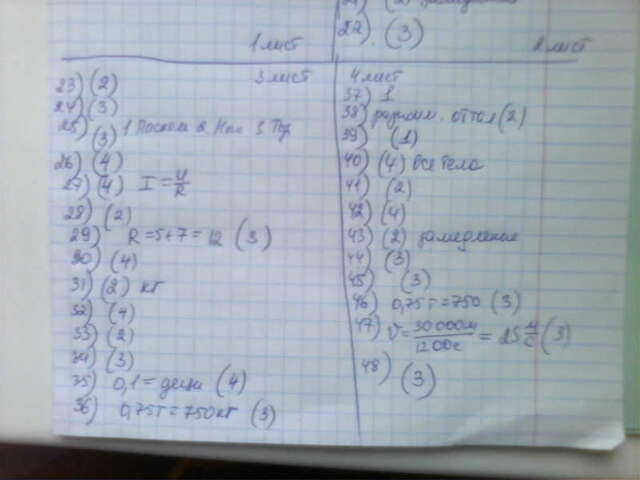 22) (3)
1 лист
2 лист
3 лист
23) (2)
24) (3)
25) (3) 1 Паскаль 2 Нью 3
26) (4)
27) (4) I = U/R
28) (2)
29) R = 5+7 = 12 (3)
30) (4)
31) (2) кг
32) (4)
33) (2)
34) (3)
35) 0,1 = деци (4)
36) 0,75т = 750 кг (3)
4 лист
37) 1
38) разноим. оттал (2)
39) (1)
40) (4) все тела
41) (2)
42) (4)
43) (2) замедление
44) (3)
45) (3)
46) 0,75т = 750 (3)
47) V = 30000м/1200с = 25 м/с (3)
48) (3)